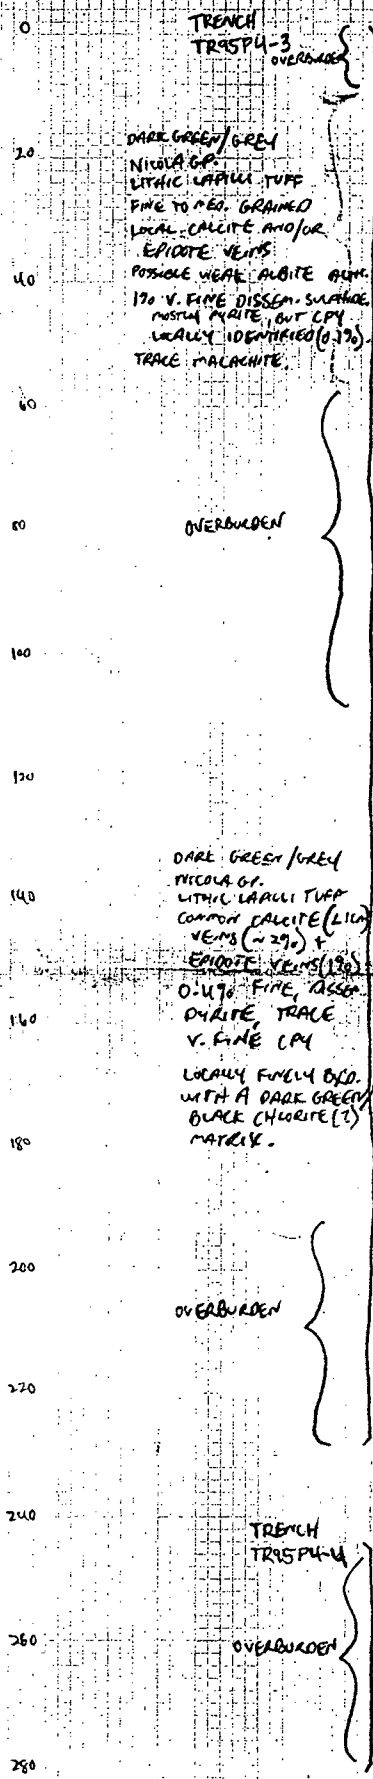 0
TRENCH
TR95P4-3
OVERBURDEN
20
DARK GREEN/GREY
NICOLA GP.
LITHIC LAPILLI TUFF
FINE TO MED. GRAINED
LOCAL CALCITE AND/OR
EPIDOTE VEINS
40
POSSIBLE WEAK ALBITE ALTN.
1% V. FINE DISSEM. SULPHIDE,
MOSTLY PYRITE, BUT CPY
LOCALLY IDENTIFIED (0.1%).
TRACE MALACHITE.
60
80
OVERBURDEN
100
120
DARK GREEN/GREY
NICOLA GP.
140
LITHIC LAPILLI TUFF
COMMON CALCITE (<1CM)
VEINS (~2%) +
EPIDOTE VEINS (1%)
0.4% FINE, DISSEM
160
PYRITE, TRACE
V. FINE CPY
LOCALLY FINELY BXD.
WITH A DARK GREEN/
BLACK CHLORITE (?)
180
MATRIX.
200
OVERBURDEN
220
240
TRENCH
TR95P4-4
260
OVERBURDEN
280